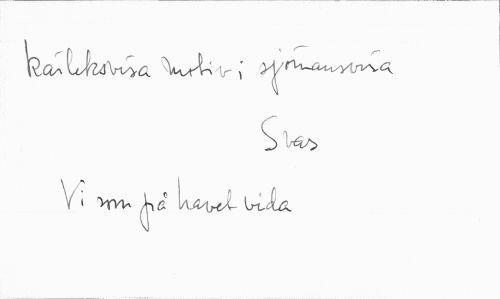 kärleksvisa motiv i sjömansvisa
Svas
Vi som på havet vida